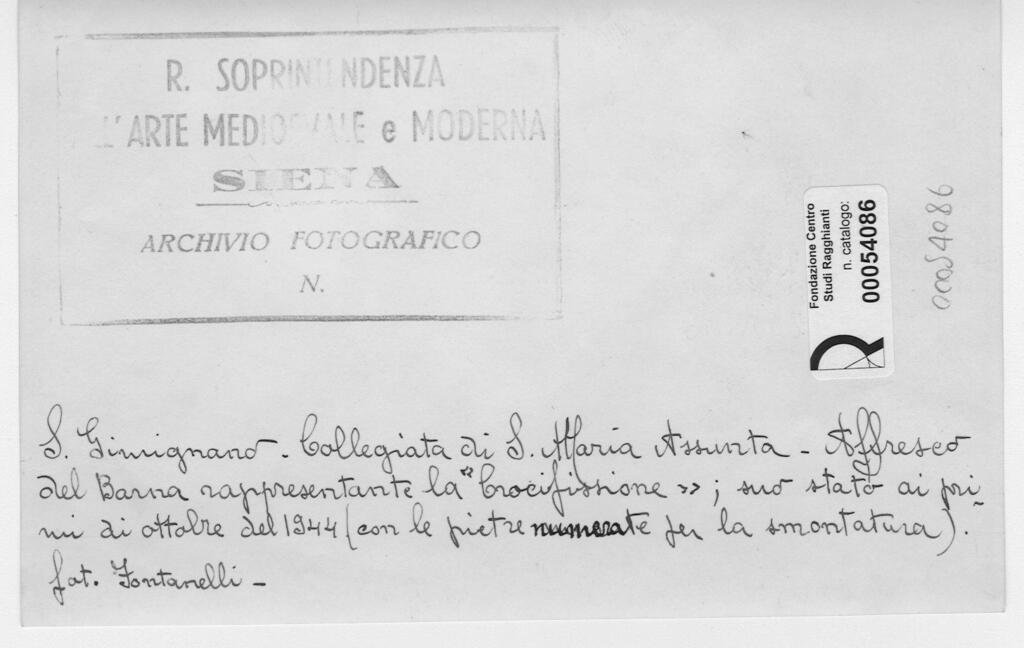 R. SOPRINTENDENZA
L'ARTE MEDIOEVALE e MODERNA
SIENA
ARCHIVIO FOTOGRAFICO
N.
Fondazione Centro
Studi Ragghianti
n. catalogo:
00054086
00054086
S. Gimignano - Collegiata di S. Maria Assunta - Affresco
del Barna rappresentante la "Crocifissione»; suo stato ai pri-
mi di ottobre del 1944 (con le pietre numerate per la smontatura).
fot. Fontanelli -